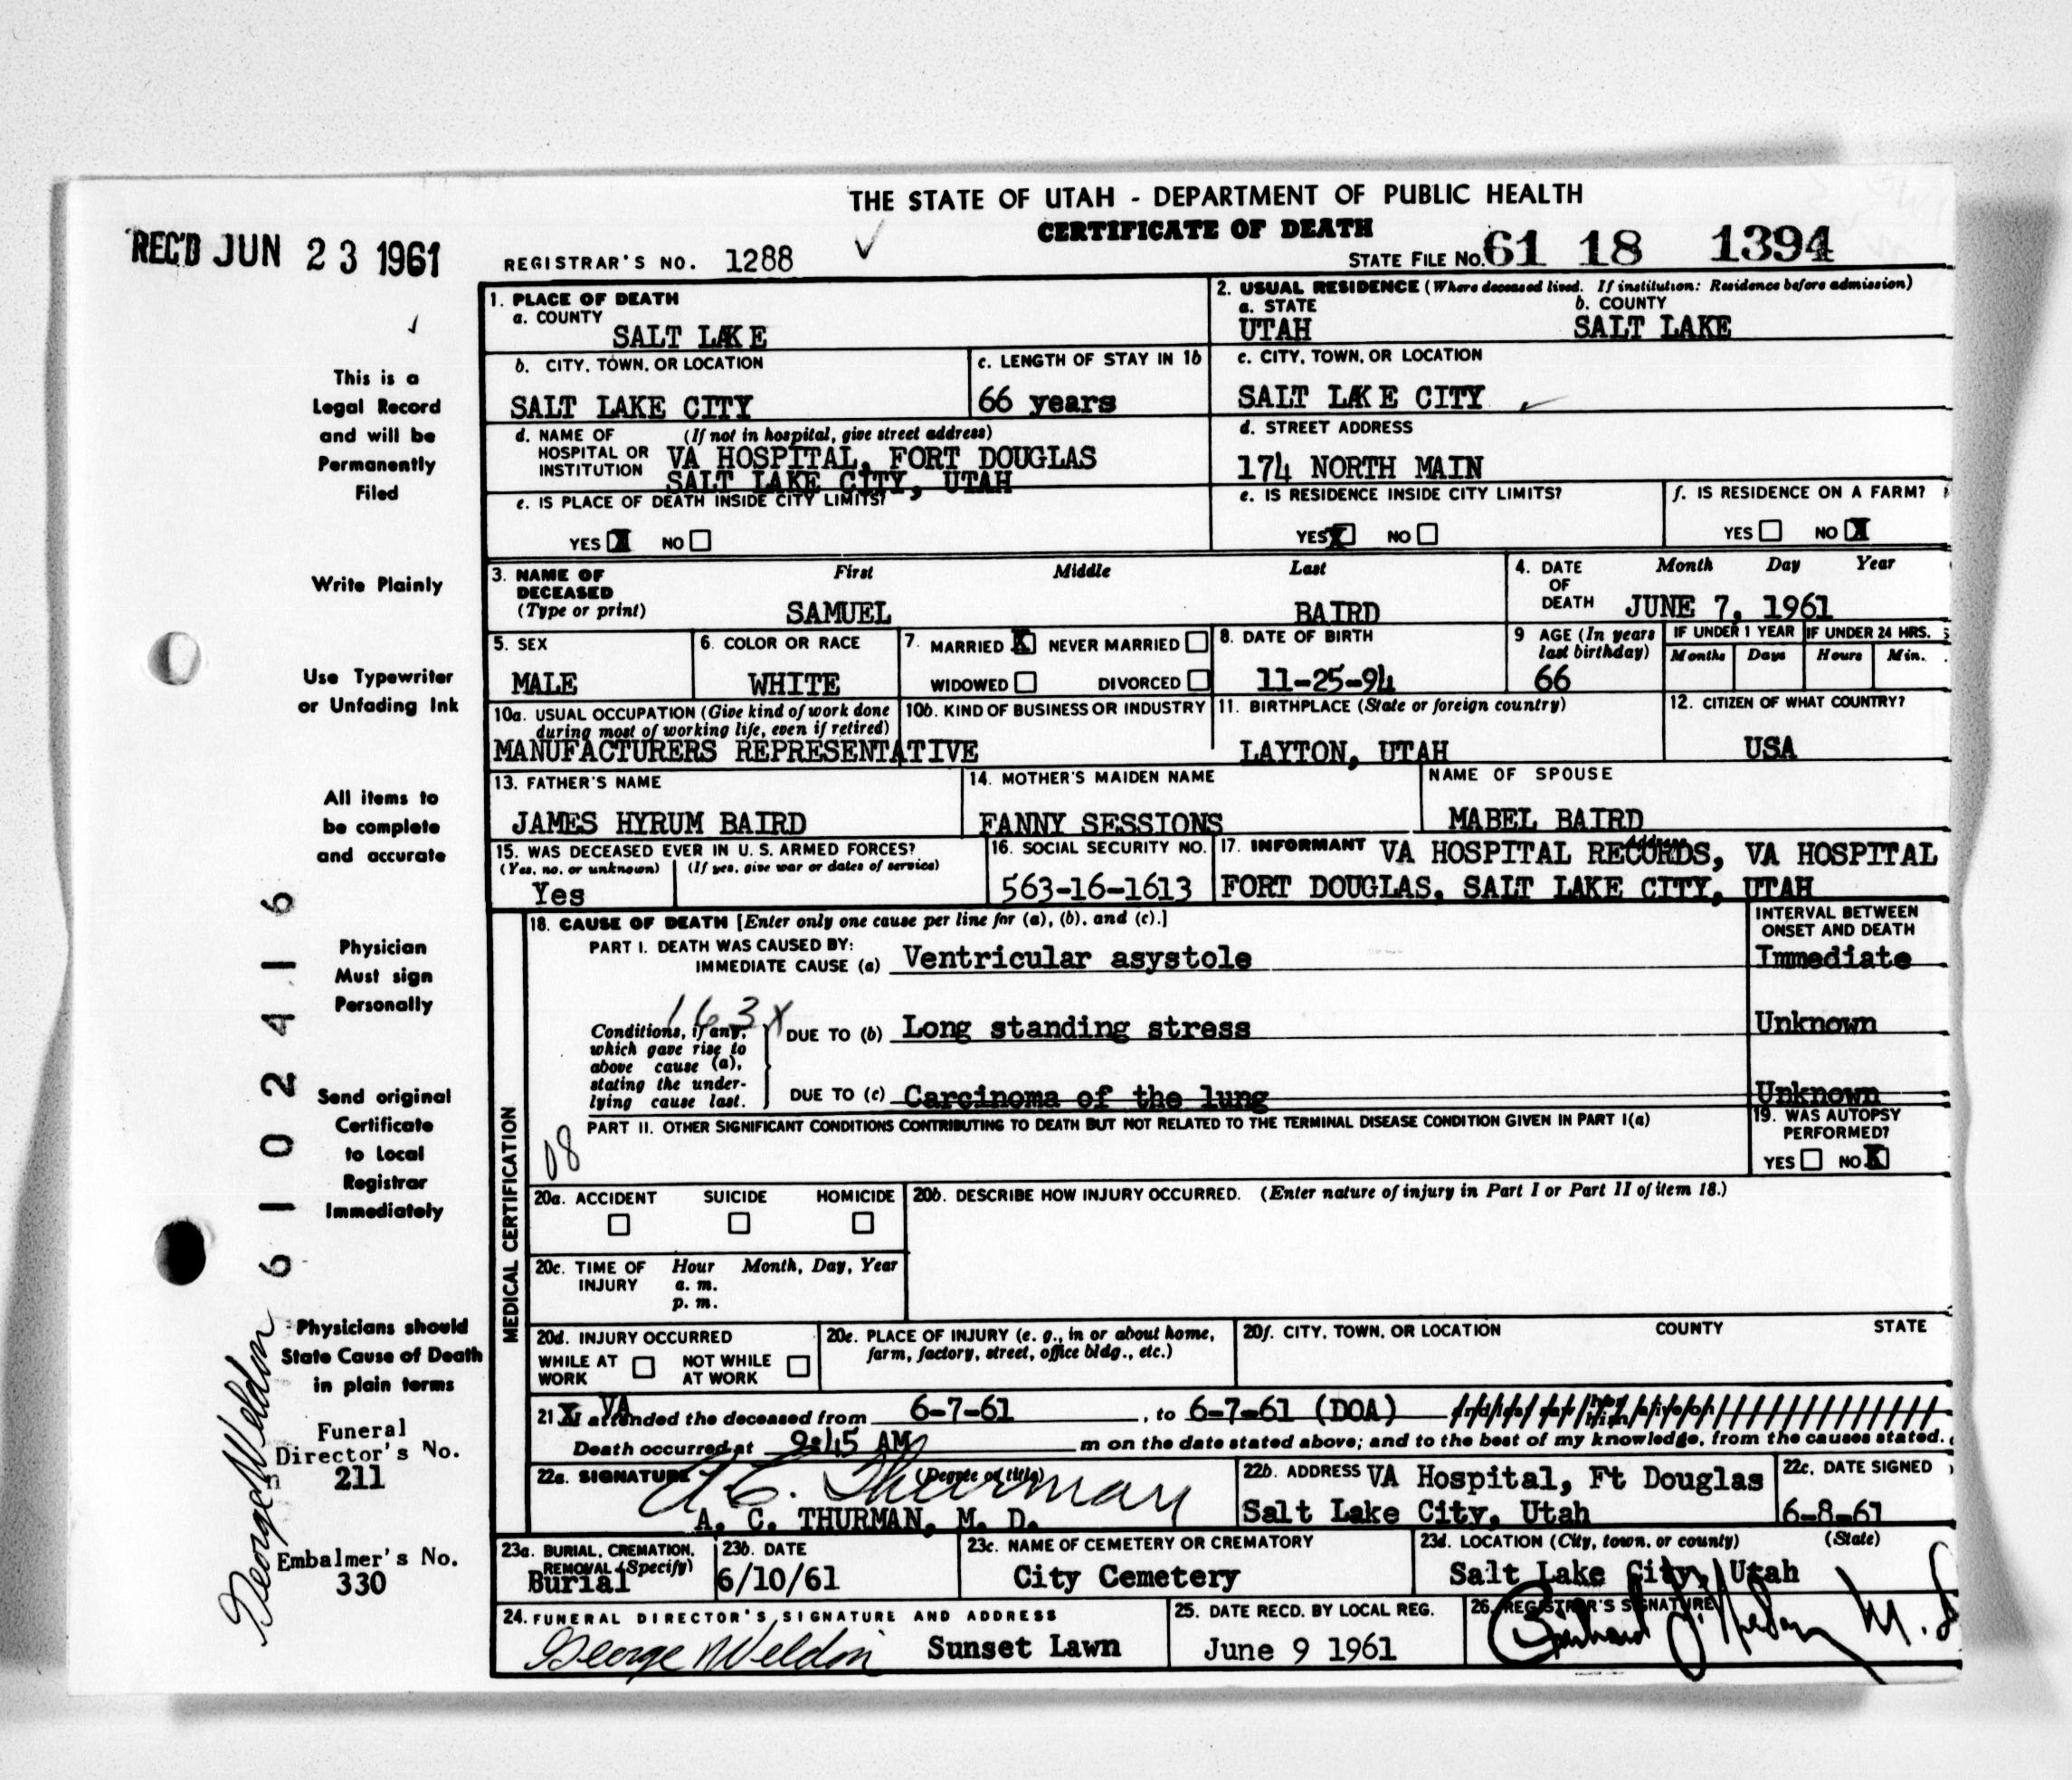 THE STATE OF UTAH - DEPARTMENT OF PUBLIC HEALTH
CERTIFICATE OF DEATH
REC'D JUN 23 1961
REGISTRAR'S NO. 1288
STATE FILE NO. 61 18 1394
1. PLACE OF DEATH
a. COUNTY
SALT LAKE
2. USUAL RESIDENCE (Where deceased lived. If institution: Residence before admission)
a. STATE b. COUNTY
UTAH SALT LAKE
b. CITY, TOWN, OR LOCATION
SALT LAKE CITY
c. LENGTH OF STAY IN 1b
66 years
c. CITY, TOWN, OR LOCATION
SALT LAKE CITY
d. NAME OF HOSPITAL OR INSTITUTION (If not in hospital, give street address)
VA HOSPITAL, FORT DOUGLAS
SALT LAKE CITY, UTAH
d. STREET ADDRESS
174 NORTH MAIN
e. IS PLACE OF DEATH INSIDE CITY LIMITS?
YES X NO
e. IS RESIDENCE INSIDE CITY LIMITS?
YES X NO
f. IS RESIDENCE ON A FARM?
YES NO X
3. NAME OF DECEASED (Type or print)
First Middle Last
SAMUEL BAIRD
4. DATE OF DEATH
Month Day Year
JUNE 7, 1961
5. SEX
MALE
6. COLOR OR RACE
WHITE
7. MARRIED X NEVER MARRIED
WIDOWED DIVORCED
8. DATE OF BIRTH
11-25-94
9 AGE (In years last birthday)
66
IF UNDER 1 YEAR
Months Days
IF UNDER 24 HRS.
Hours Min.
10a. USUAL OCCUPATION (Give kind of work done during most of working life, even if retired)
MANUFACTURERS REPRESENTATIVE
10b. KIND OF BUSINESS OR INDUSTRY
11. BIRTHPLACE (State or foreign country)
LAYTON, UTAH
12. CITIZEN OF WHAT COUNTRY?
USA
13. FATHER'S NAME
JAMES HYRUM BAIRD
14. MOTHER'S MAIDEN NAME
FANNY SESSIONS
NAME OF SPOUSE
MABEL BAIRD
15. WAS DECEASED EVER IN U. S. ARMED FORCES?
(Yes, no, or unknown) (If yes, give war or dates of service)
Yes
16. SOCIAL SECURITY NO.
563-16-1613
17. INFORMANT Address
VA HOSPITAL RECORDS, VA HOSPITAL
FORT DOUGLAS, SALT LAKE CITY, UTAH
MEDICAL CERTIFICATION
18. CAUSE OF DEATH [Enter only one cause per line for (a), (b), and (c).]
INTERVAL BETWEEN ONSET AND DEATH
PART I. DEATH WAS CAUSED BY:
IMMEDIATE CAUSE (a) Ventricular asystole Immediate
163X
Conditions, if any, which gave rise to above cause (a), stating the underlying cause last.
DUE TO (b) Long standing stress Unknown
DUE TO (c) Carcinoma of the lung Unknown
PART II. OTHER SIGNIFICANT CONDITIONS CONTRIBUTING TO DEATH BUT NOT RELATED TO THE TERMINAL DISEASE CONDITION GIVEN IN PART I(a)
08
19. WAS AUTOPSY PERFORMED?
YES NO X
20a. ACCIDENT SUICIDE HOMICIDE
20b. DESCRIBE HOW INJURY OCCURRED. (Enter nature of injury in Part I or Part II of item 18.)
20c. TIME OF INJURY
Hour Month, Day, Year
a. m.
p. m.
20d. INJURY OCCURRED
WHILE AT WORK NOT WHILE AT WORK
20e. PLACE OF INJURY (e. g., in or about home, farm, factory, street, office bldg., etc.)
20f. CITY, TOWN, OR LOCATION COUNTY STATE
21 VA attended the deceased from 6-7-61, to 6-7-61 (DOA)
Death occurred at 9:45 AM m on the date stated above; and to the best of my knowledge, from the causes stated.
22a. SIGNATURE (Degree or title)
A C. Thurman
A. C. THURMAN, M. D.
22b. ADDRESS VA Hospital, Ft Douglas
Salt Lake City, Utah
22c. DATE SIGNED
6-8-61
23a. BURIAL, CREMATION, REMOVAL (Specify)
Burial
23b. DATE
6/10/61
23c. NAME OF CEMETERY OR CREMATORY
City Cemetery
23d. LOCATION (City, town, or county) (State)
Salt Lake City, Utah
24. FUNERAL DIRECTOR'S SIGNATURE AND ADDRESS
George Weldon Sunset Lawn
25. DATE RECD. BY LOCAL REG.
June 9 1961
26. REGISTRAR'S SIGNATURE
M. D
This is a
Legal Record
and will be
Permanently
Filed
Write Plainly
Use Typewriter
or Unfading Ink
All items to
be complete
and accurate
Physician
Must sign
Personally
Send original
Certificate
to Local
Registrar
Immediately
Physicians should
State Cause of Death
in plain terms
Funeral
Director's No.
211
Embalmer's No.
330
George Weldon
61 02416